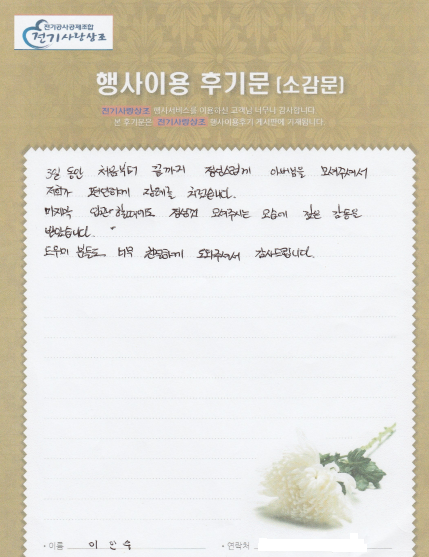 전기공사공제조합
전기사랑상조
행사이용 후기문 (소감문)
전기사랑상조 행사서비스를 이용하신 고객님 대단히 감사합니다.
본 후기문은 전기사랑상조 행사이용후기 게시판에 기재됩니다.
3일 동안 처음부터 끝까지 정성스럽게 아버님을 모셔주셔서
저희가 편안하게 장례를 치렀습니다.
마지막 입관 할때에도 정성껏 모셔주시는 모습에 깊은 감동을
받았습니다.
도우미 분들도 너무 친절하게 도와주셔서 감사드립니다.
• 이름 이 수 • 연락처